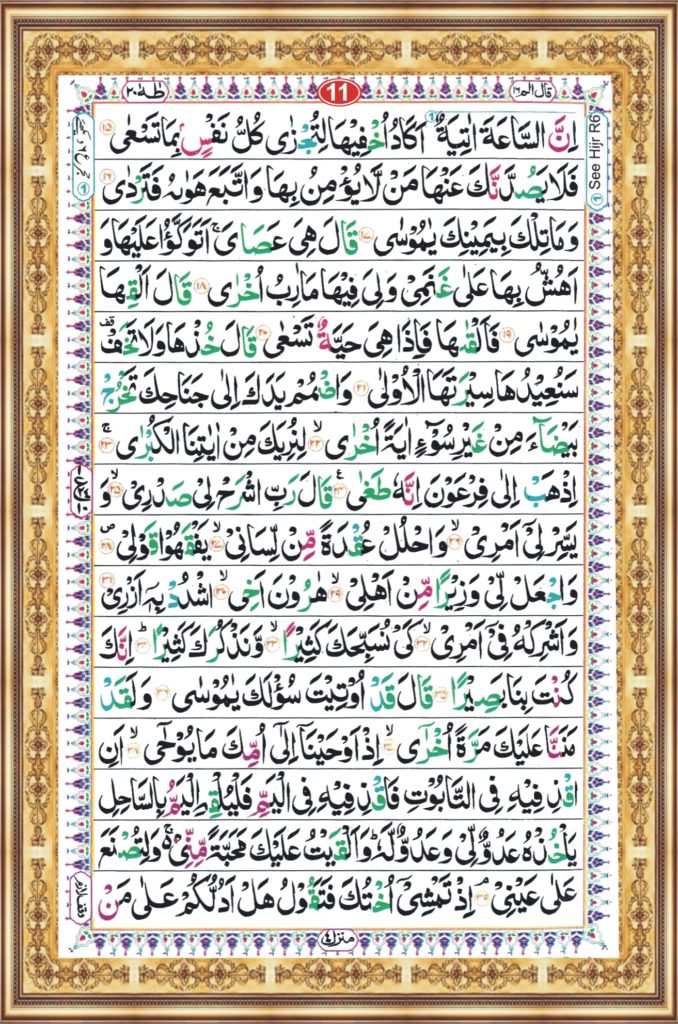 قال الم ١٦
11
طٰهٰ ٢٠
اِنَّ السَّاعَةَ اٰتِيَةٌ اَكَادُ اُخْفِيْهَا لِتُجْزٰى كُلُّ نَفْسٍۭ بِمَا تَسْعٰى ۝١٥
فَلَا يَصُدَّنَّكَ عَنْهَا مَنْ لَّا يُؤْمِنُ بِهَا وَاتَّبَعَ هَوٰىهُ فَتَرْدٰى ۝١٦
وَمَا تِلْكَ بِيَمِيْنِكَ يٰمُوْسٰى ۝١٧ قَالَ هِيَ عَصَايَ ۚ اَتَوَكَّؤُا عَلَيْهَا وَ
اَهُشُّ بِهَا عَلٰى غَنَمِيْ وَلِيَ فِيْهَا مَاٰرِبُ اُخْرٰى ۝١٨ قَالَ اَلْقِهَا
يٰمُوْسٰى ۝١٩ فَاَلْقٰىهَا فَاِذَا هِيَ حَيَّةٌ تَسْعٰى ۝٢٠ قَالَ خُذْهَا وَلَا تَخَفْ ۥ وقفه
سَنُعِيْدُهَا سِيْرَتَهَا الْاُوْلٰى ۝٢١ وَاضْمُمْ يَدَكَ اِلٰى جَنَاحِكَ تَخْرُجْ
بَيْضَآءَ مِنْ غَيْرِ سُوْٓءٍ اٰيَةً اُخْرٰى ۝٢٢ لِنُرِيَكَ مِنْ اٰيٰتِنَا الْكُبْرٰى ۝٢٣
اِذْهَبْ اِلٰى فِرْعَوْنَ اِنَّهٗ طَغٰى ۝٢٤ قَالَ رَبِّ اشْرَحْ لِيْ صَدْرِيْ ۝٢٥ وَ
يَسِّرْ لِيْٓ اَمْرِيْ ۝٢٦ وَاحْلُلْ عُقْدَةً مِّنْ لِّسَانِيْ ۝٢٧ يَفْقَهُوْا قَوْلِيْ ۝٢٨
وَاجْعَلْ لِّيْ وَزِيْرًا مِّنْ اَهْلِيْ ۝٢٩ هٰرُوْنَ اَخِي ۝٣٠ اشْدُدْ بِهٖٓ اَزْرِيْ ۝٣١
وَاَشْرِكْهُ فِيْٓ اَمْرِيْ ۝٣٢ كَيْ نُسَبِّحَكَ كَثِيْرًا ۝٣٣ وَّنَذْكُرَكَ كَثِيْرًا ۝٣٤ اِنَّكَ
كُنْتَ بِنَا بَصِيْرًا ۝٣٥ قَالَ قَدْ اُوْتِيْتَ سُؤْلَكَ يٰمُوْسٰى ۝٣٦ وَلَقَدْ
مَنَنَّا عَلَيْكَ مَرَّةً اُخْرٰٓى ۝٣٧ اِذْ اَوْحَيْنَآ اِلٰٓى اُمِّكَ مَا يُوْحٰٓى ۝٣٨ اَنِ
اقْذِفِيْهِ فِي التَّابُوْتِ فَاقْذِفِيْهِ فِي الْيَمِّ فَلْيُلْقِهِ الْيَمُّ بِالسَّاحِلِ
يَاْخُذْهُ عَدُوٌّ لِّيْ وَعَدُوٌّ لَّهٗ ؕ وَاَلْقَيْتُ عَلَيْكَ مَحَبَّةً مِّنِّيْ ۚ۬ وَلِتُصْنَعَ
عَلٰى عَيْنِيْ ۝٣٩ اِذْ تَمْشِيْٓ اُخْتُكَ فَتَقُوْلُ هَلْ اَدُلُّكُمْ عَلٰى مَنْ
See Hijr R6
منزل ٤